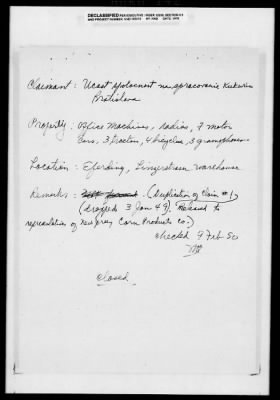 DECLASSIFIED
Claimant : Ucast spolocnost na spracovanie Kukurice
Bratislava
Property : Office Machines, Radios, 7 motor
Cars, 3 tractors, 4 bicycles, 3 gramophones
Location : Eferding, Linzerstrasse warehouse
Remarks : (Duplication of Claim #1)
(dropped 3 Jan 49). Released to
representative of New Jersey Corn Products Co)
checked 9 Feb 50
closed